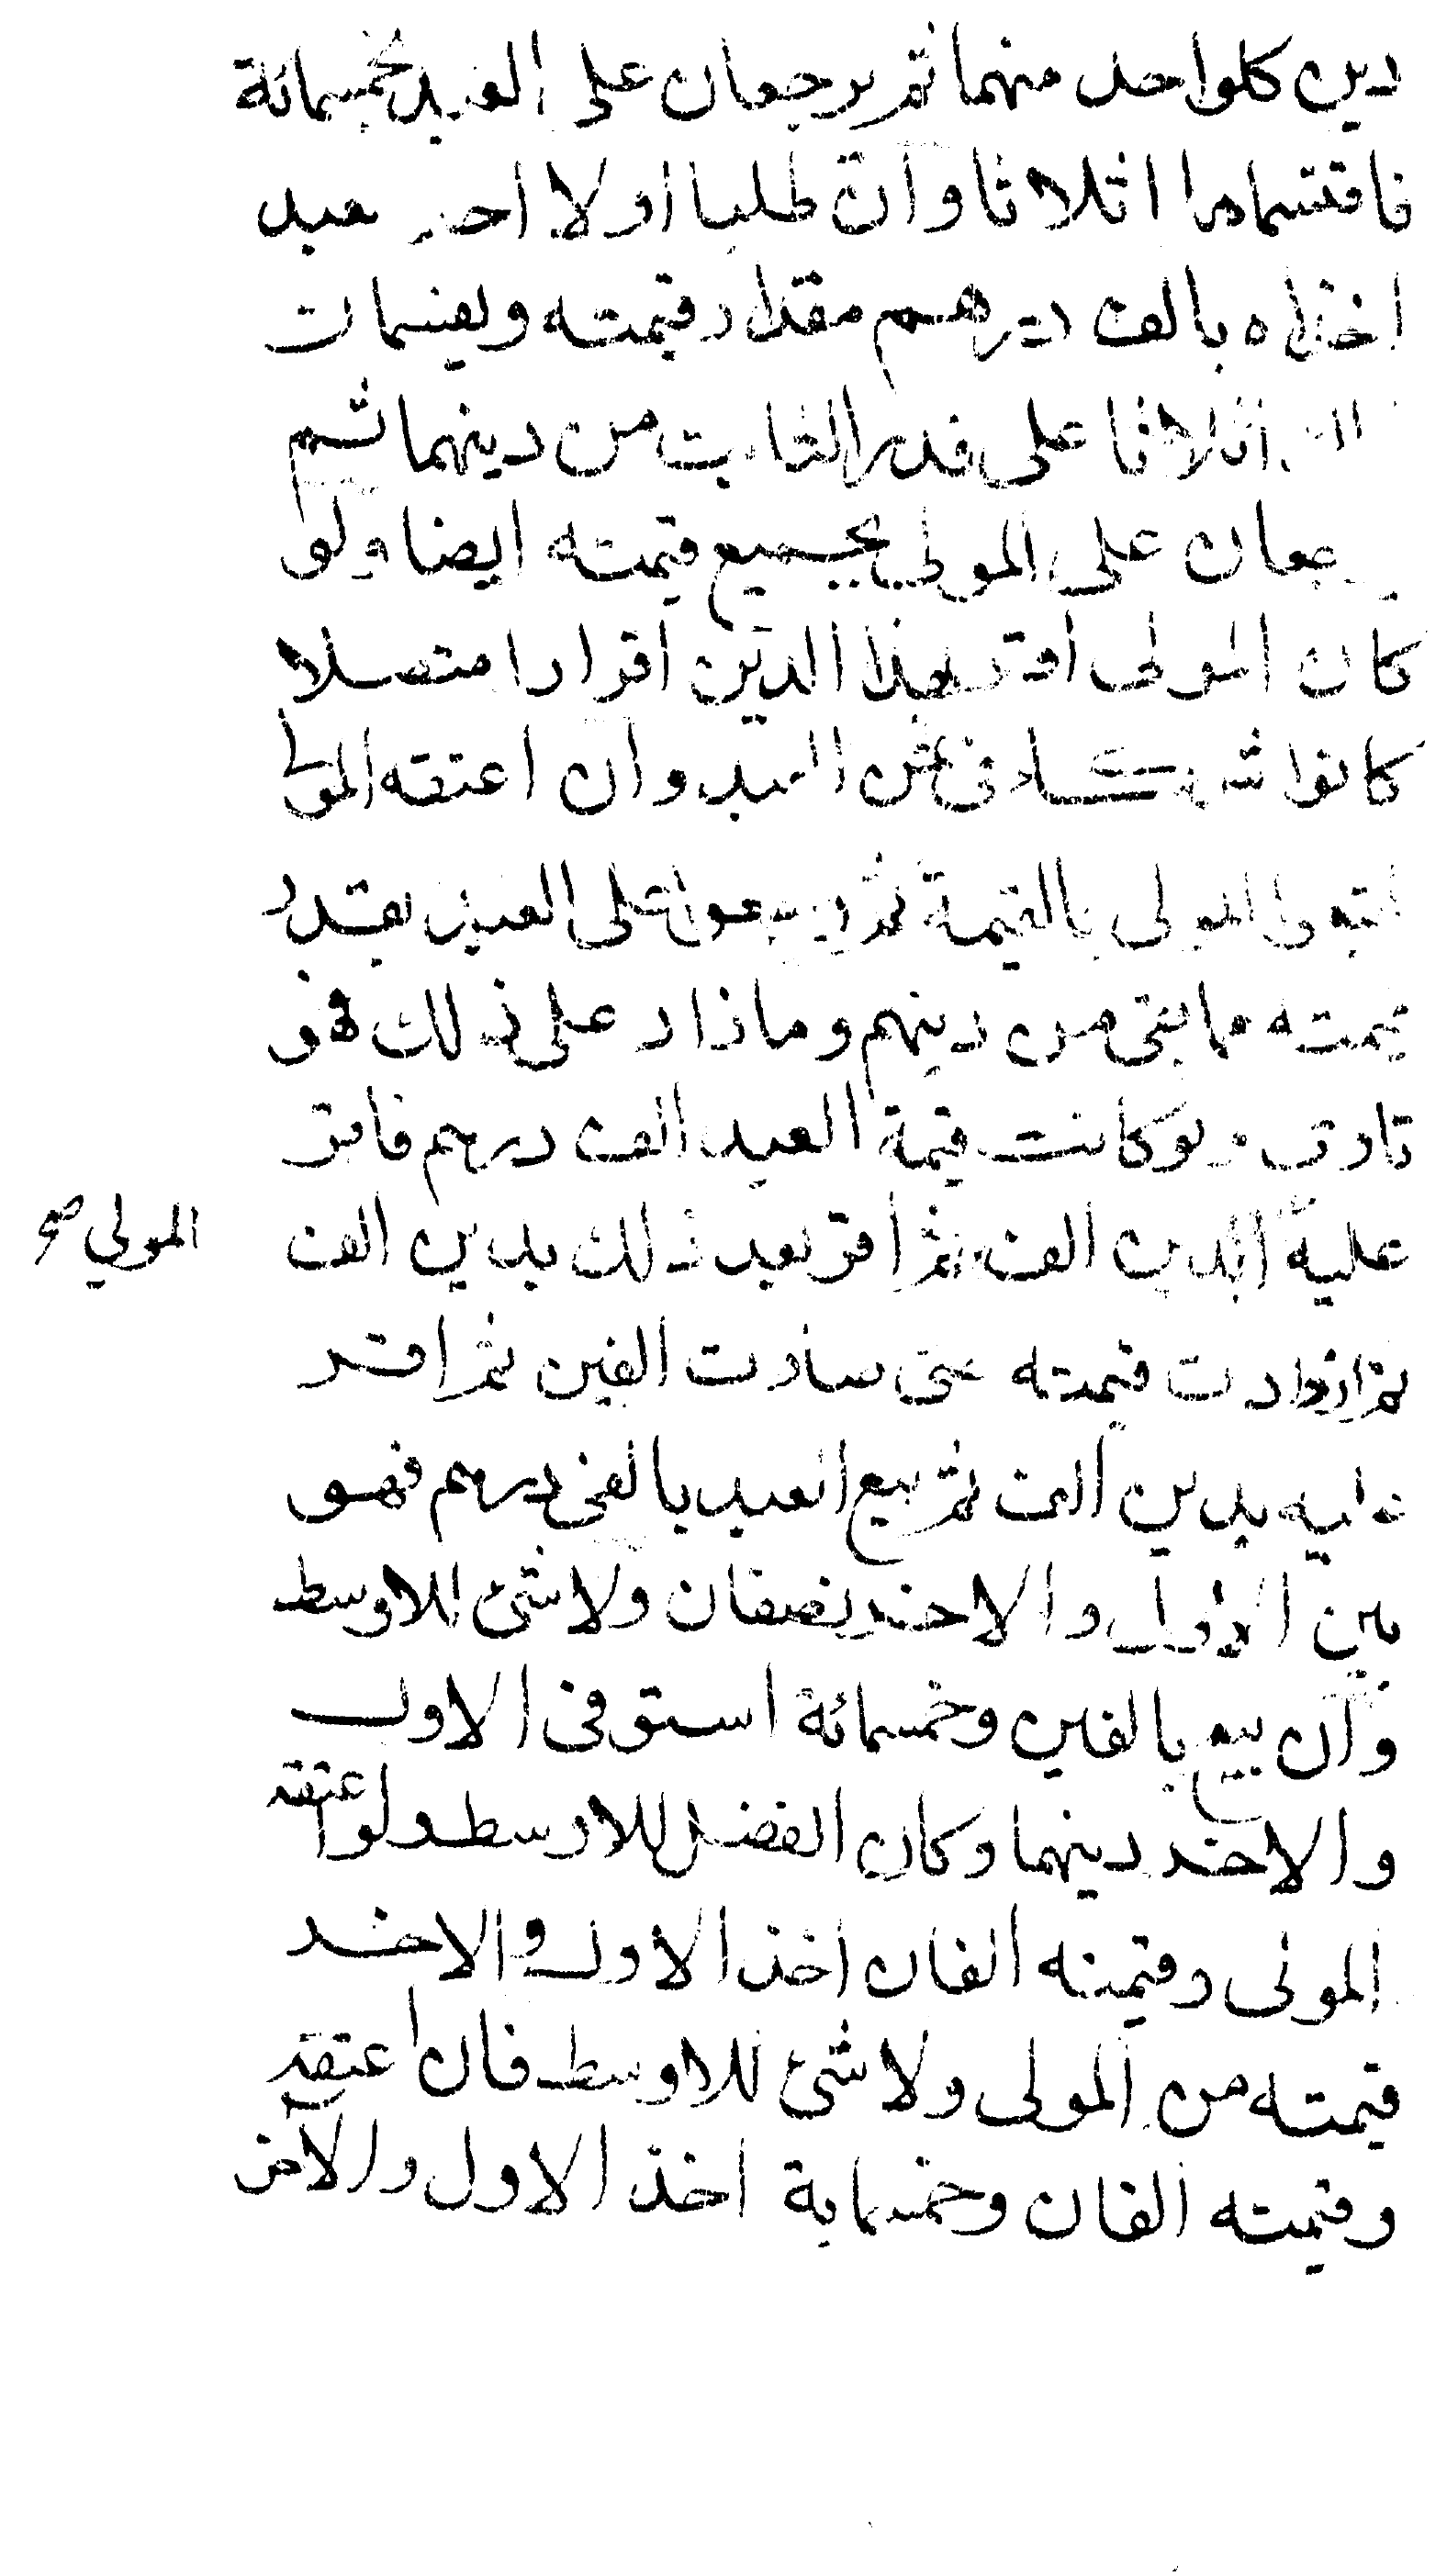 دين كلواحد منهما ثم يرجعان على العبد بخمسمائة
فاقتسماها اثلاثا وان طلبا اولا اخذ العبد
اخذاه بالف درهم مقدار قيمته ويقسمان
اثلاثا على قدر الثابت من دينهما ثم
يرجعان على المولى بجميع قيمته ايضا ولو
كان المولى اقر بهذا الدين اقرارا متصلا
كانوا شركاء فى ثمن العبد وان اعتقه المولى
اتبعوا المولى بالقيمة ثم يرجعوا على العبد بقدر
قيمته مما بقى من دينهم وما زاد على ذلك فهو
تاوى ولو كانت قيمة العبد الف درهم فاقر
عليه المولي صح بدين الف ثم اقر بعد ذلك بدين الف
ثم ازدادت قيمته حتى صارت الفين ثم اقر
عليه بدين الف ثم بيع العبد بالفى درهم فهو
بين الاول والاخر نصفان ولا شئ للاوسط
وان بيع بالفين وخمسمائة استوفى الاول
والاخر دينهما وكان الفضل للاوسط ولو اعتقه
المولى وقيمته الفان اخذ الاول والاخر
قيمته من المولى ولا شئ للاوسط فان اعتقه
وقيمته الفان وخمسماية اخذ الاول والاخر